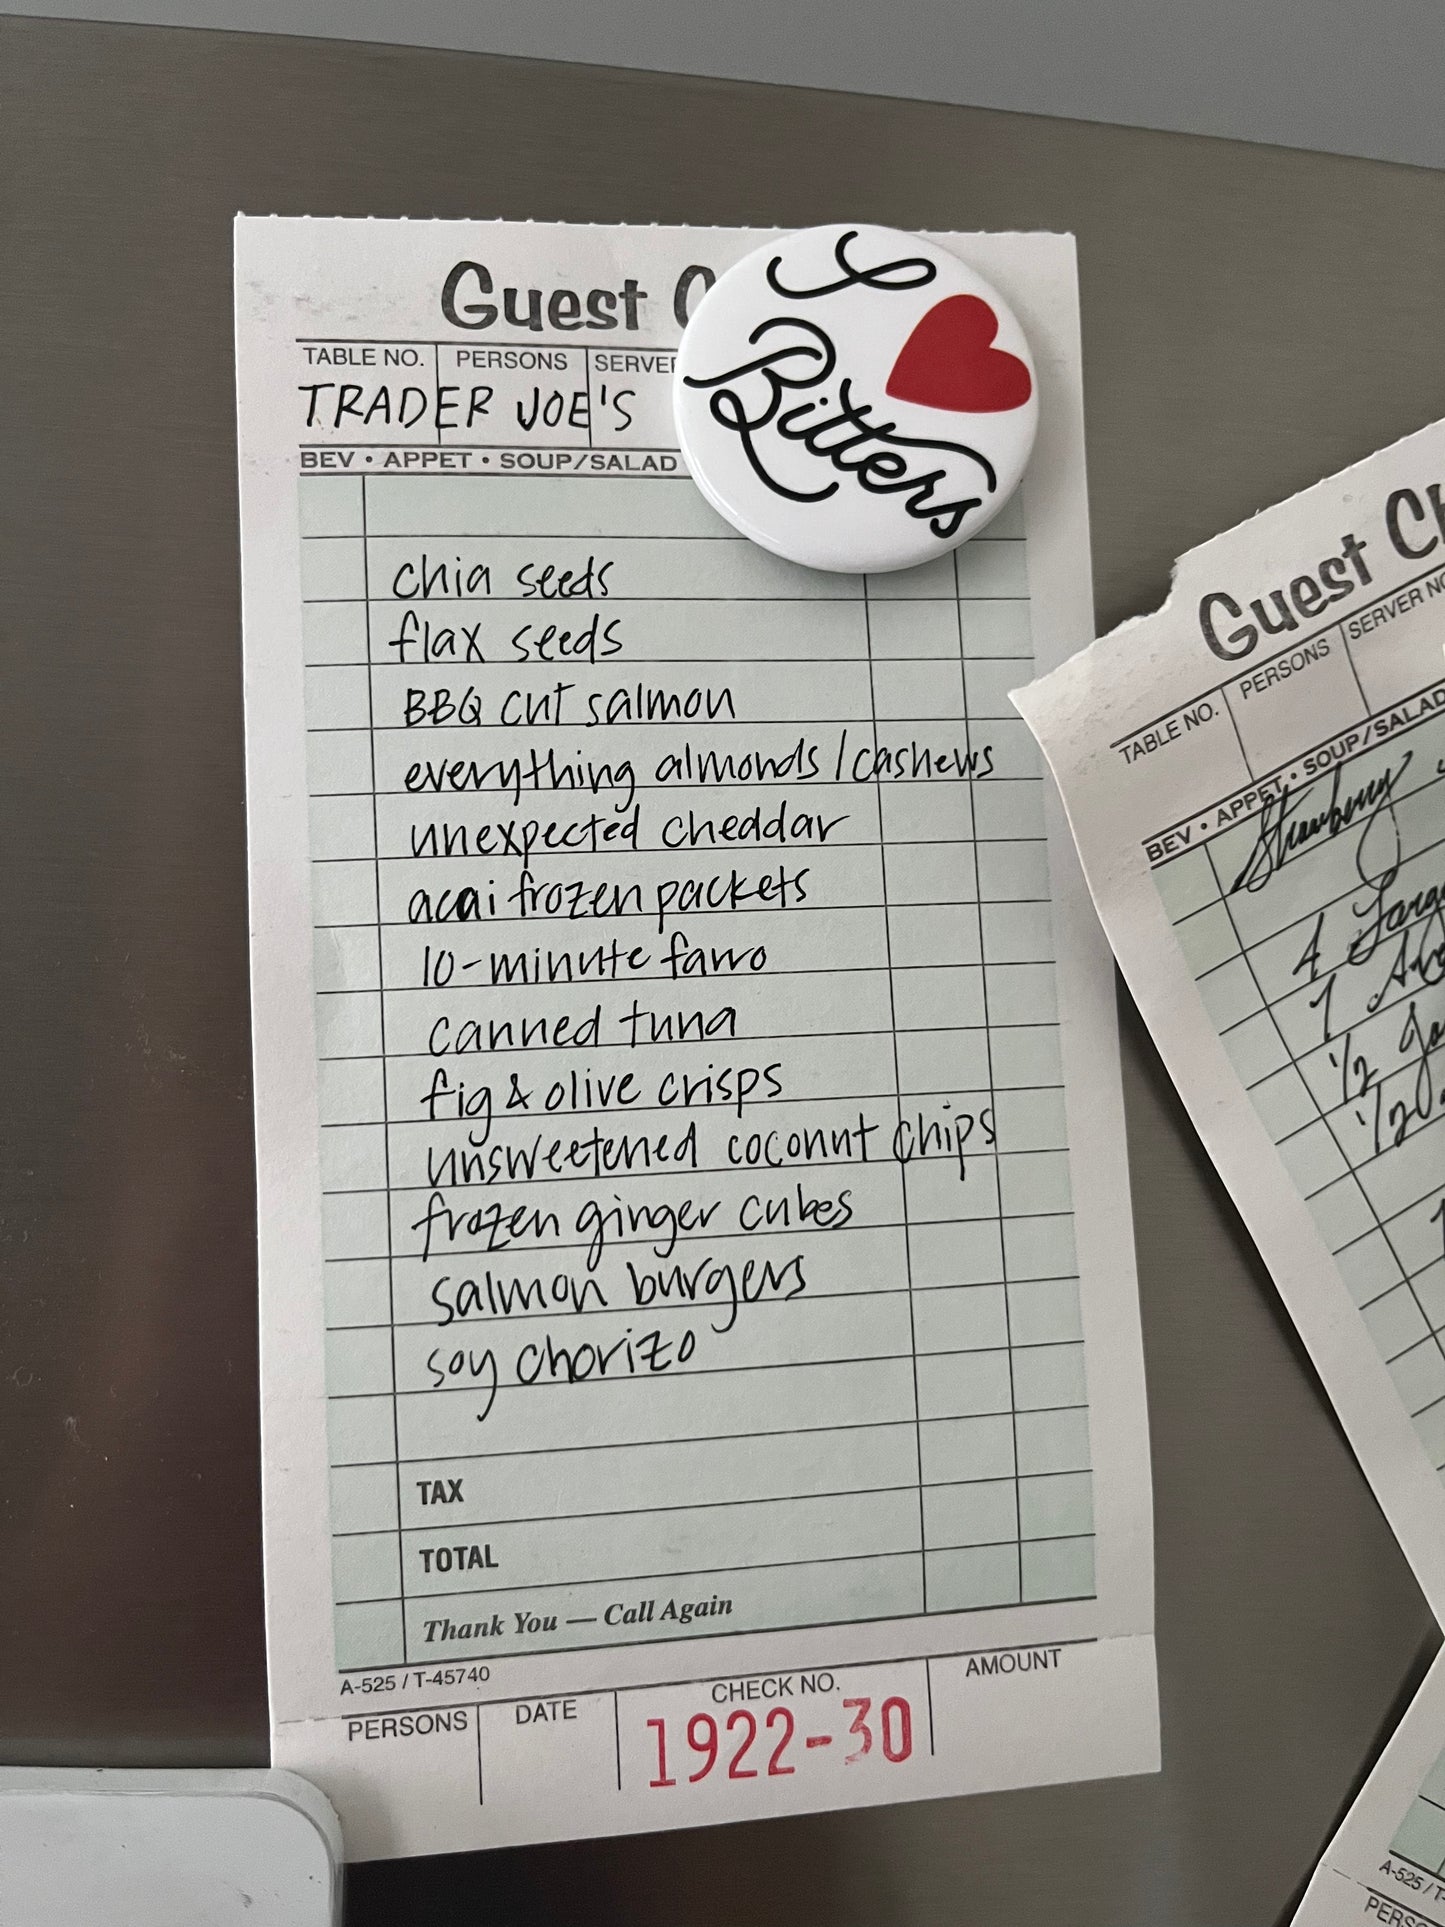 Guest
TABLE NO. PERSONS
TRADER JOE'S
BEV • APPET • SOUP/SALAD
I
Bitters
chia seeds
flax seeds
BBQ cut salmon
everything almonds / cashews
unexpected cheddar
acai frozen packets
10-minute farro
canned tuna
fig & olive crisps
unsweetened coconut chips
frozen ginger cubes
salmon burgers
soy chorizo
TAX
TOTAL
Thank You — Call Again
A-525 / T-45740
PERSONS DATE CHECK NO. AMOUNT
1922-30
Guest
TABLE NO. PERSONS SERVER
BEV • APPET • SOUP/SALAD
Strawberry
4
1
1/2
1/2